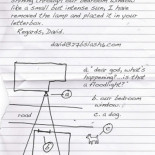 shining through our bedroom window
like a small but intense sun, I have
removed the lamp and placed it in your
letterbox.
Regards, David.
a. 'dear god, what's
happening?... is that
a floodlight?
b. our bedroom
window.
c. a dog.
road